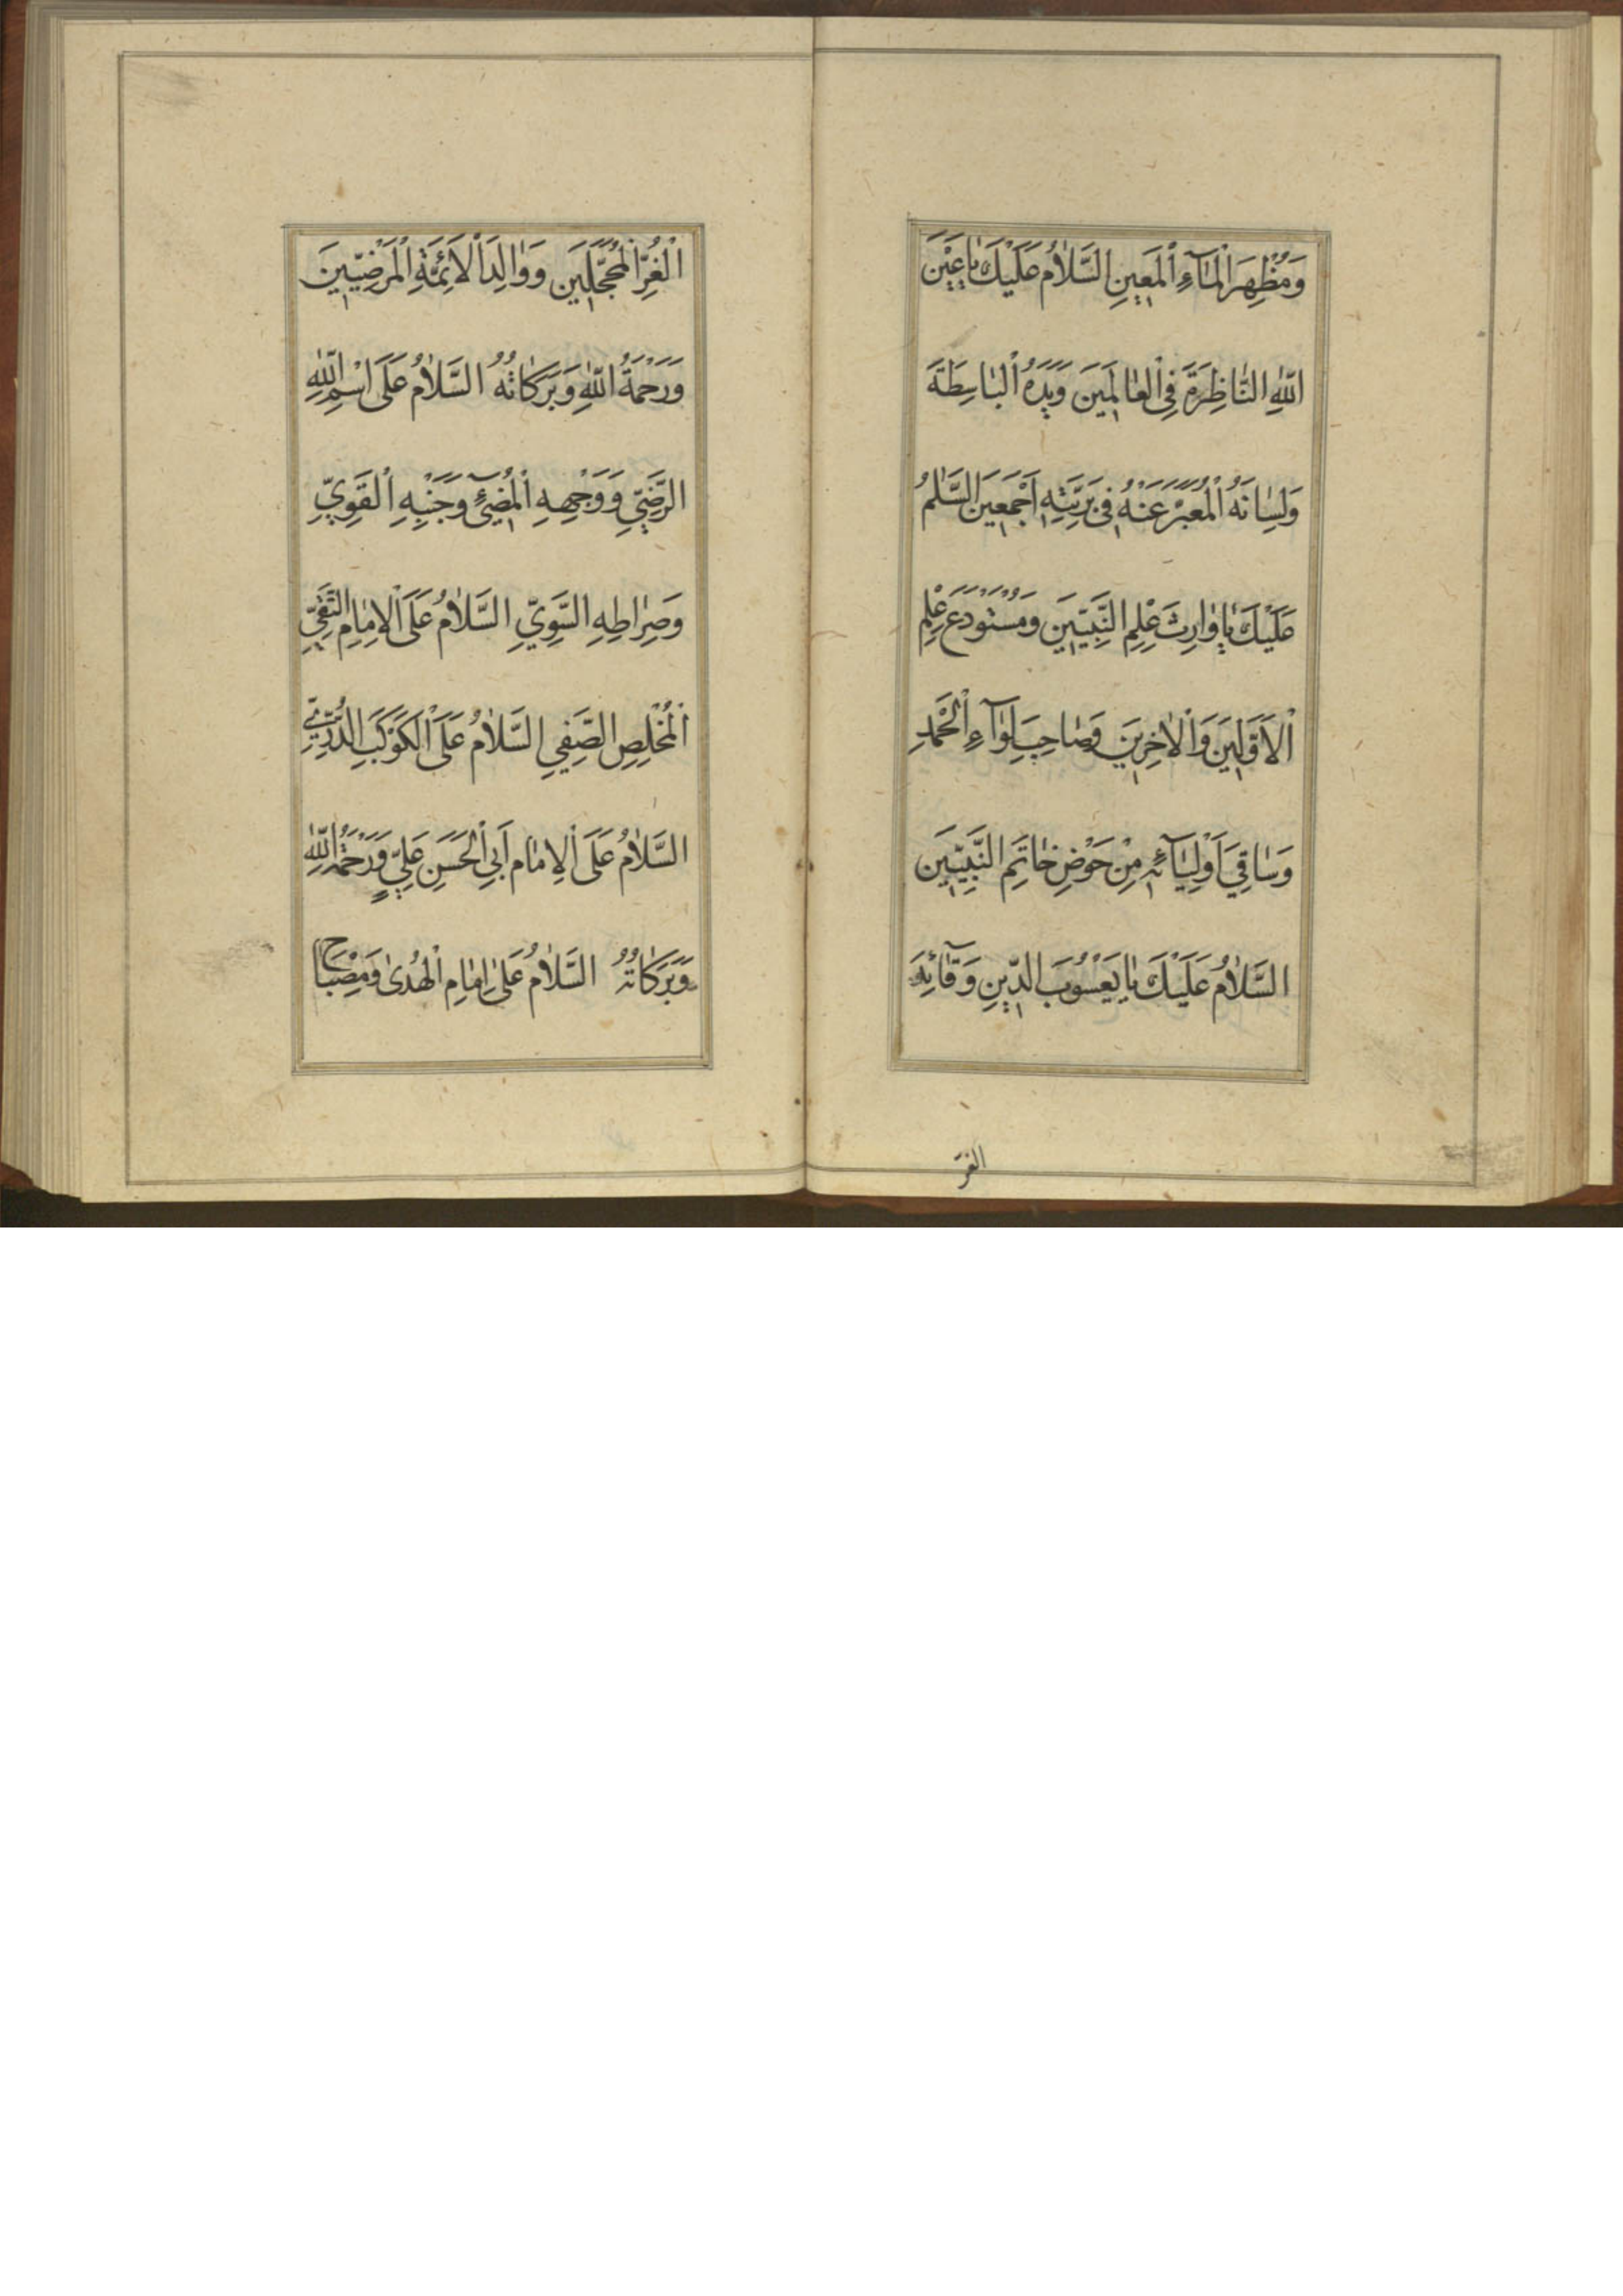 وَمُظْهِرَ الْمَآءِ الْمَعِينِ السَّلَامُ عَلَيْكَ يَا عَيْنَ
اللّٰهِ النَّاظِرَةَ فِى الْعَالَمِينَ وَيَدَهُ الْبَاسِطَةَ
وَلِسَانَهُ الْمُعَبِّرَ عَنْهُ فِى بَرِيَّتِهِ اَجْمَعِينَ السَّلٰمُ
عَلَيْكَ يَا وَارِثَ عِلْمِ النَّبِيّٖينَ وَمُسْتَوْدَعَ عِلْمِ
الْاَوَّلِينَ وَالْاٰخِرِينَ وَصَاحِبَ لِوَآءِ الْحَمْدِ
وَسَاقِيَ اَوْلِيَآئِهِ مِنْ حَوْضِ خَاتَمِ النَّبِيّٖينَ
السَّلَامُ عَلَيْكَ يَا يَعْسُوبَ الدِّينِ وَقَآئِدَ
الغر
الْغُرِّ الْمُحَجَّلِينَ وَوَالِدَ الْاَئِمَّةِ الْمَرْضِيّٖينَ
وَرَحْمَةُ اللّٰهِ وَبَرَكَاتُهُ السَّلَامُ عَلَى اسْمِ اللّٰهِ
الرَّضِيِّ وَوَجْهِهِ الْمُضِيٓئِ وَجَنْبِهِ الْقَوِيِّ
وَصِرَاطِهِ السَّوِيِّ السَّلَامُ عَلَى الْاِمَامِ التَّقِيِّ
الْمُخْلِصِ الصَّفِيِ السَّلَامُ عَلَى الْكَوْكَبِ الدُّرِّيِّ
السَّلَامُ عَلَى الْاِمَامِ اَبِي الْحَسَنِ عَلِيٍّ وَرَحْمَةُ اللّٰهِ
وَبَرَكَاتُهُ السَّلَامُ عَلٰى اِمَامِ الْهُدٰى وَمِصْبَاحِ